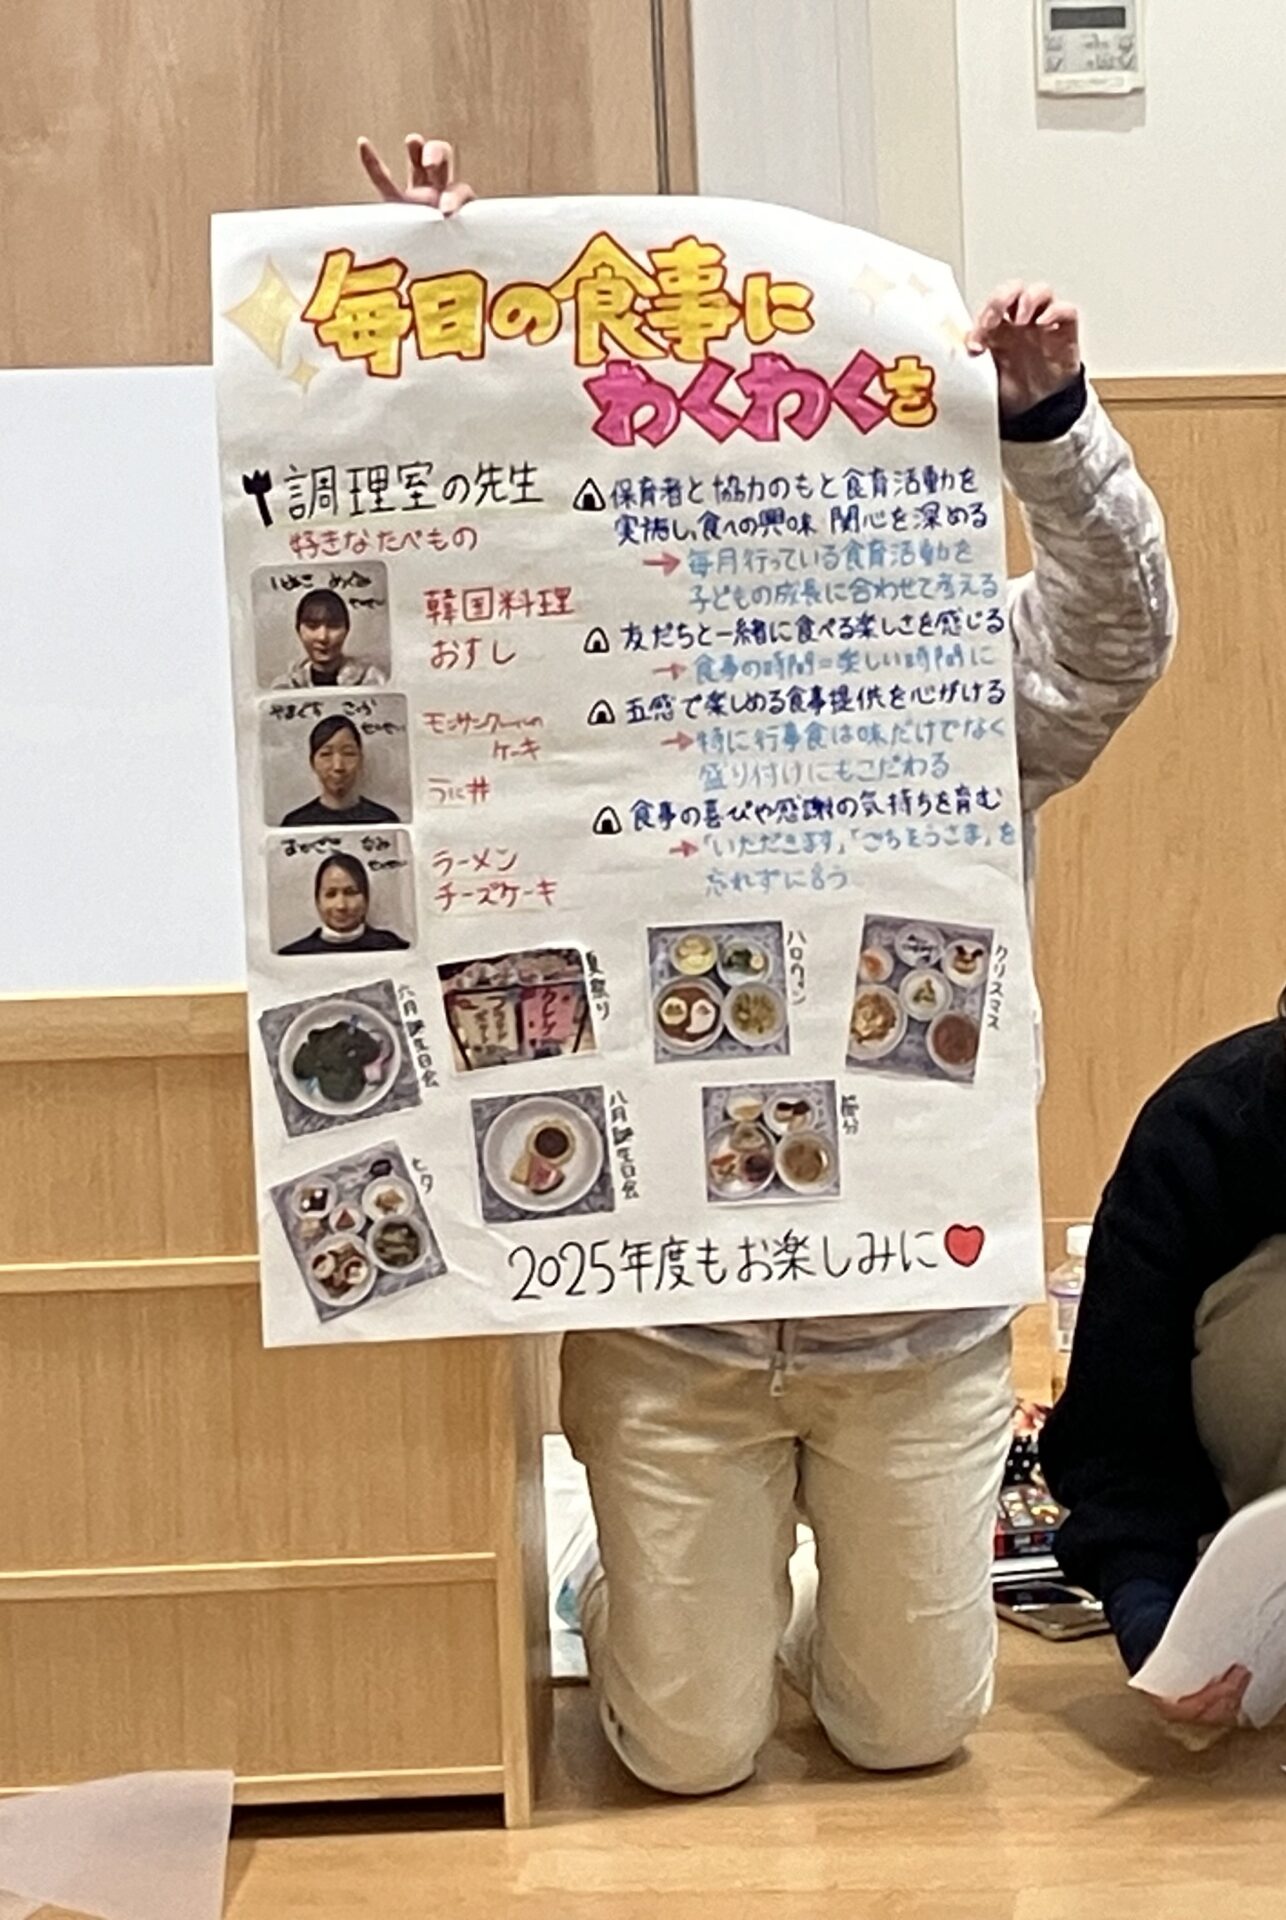 毎日の食事に
わくわくを
調理室の先生
好きなたべもの
せんせい
韓国料理
おすし
せんせい
ケーキ
うに丼
なみ
せんせい
ラーメン
チーズケーキ
保育者と協力のもと食育活動を
実施し、食への興味 関心を深める
→毎月行っている食育活動を
子どもの成長に合わせて考える
友だちと一緒に食べる楽しさを感じる
→食事の時間=楽しい時間に
五感で楽しめる食事提供を心がける
→特に行事食は味だけでなく
盛り付けにもこだわる
食事の喜びや感謝の気持ちを育む
→「いただきます」「ごちそうさま」を
忘れずに言う
六月誕生日会
夏祭り
クレープ
ハロウィン
クリスマス
七夕
八月誕生日会
節分
2025年度もお楽しみに